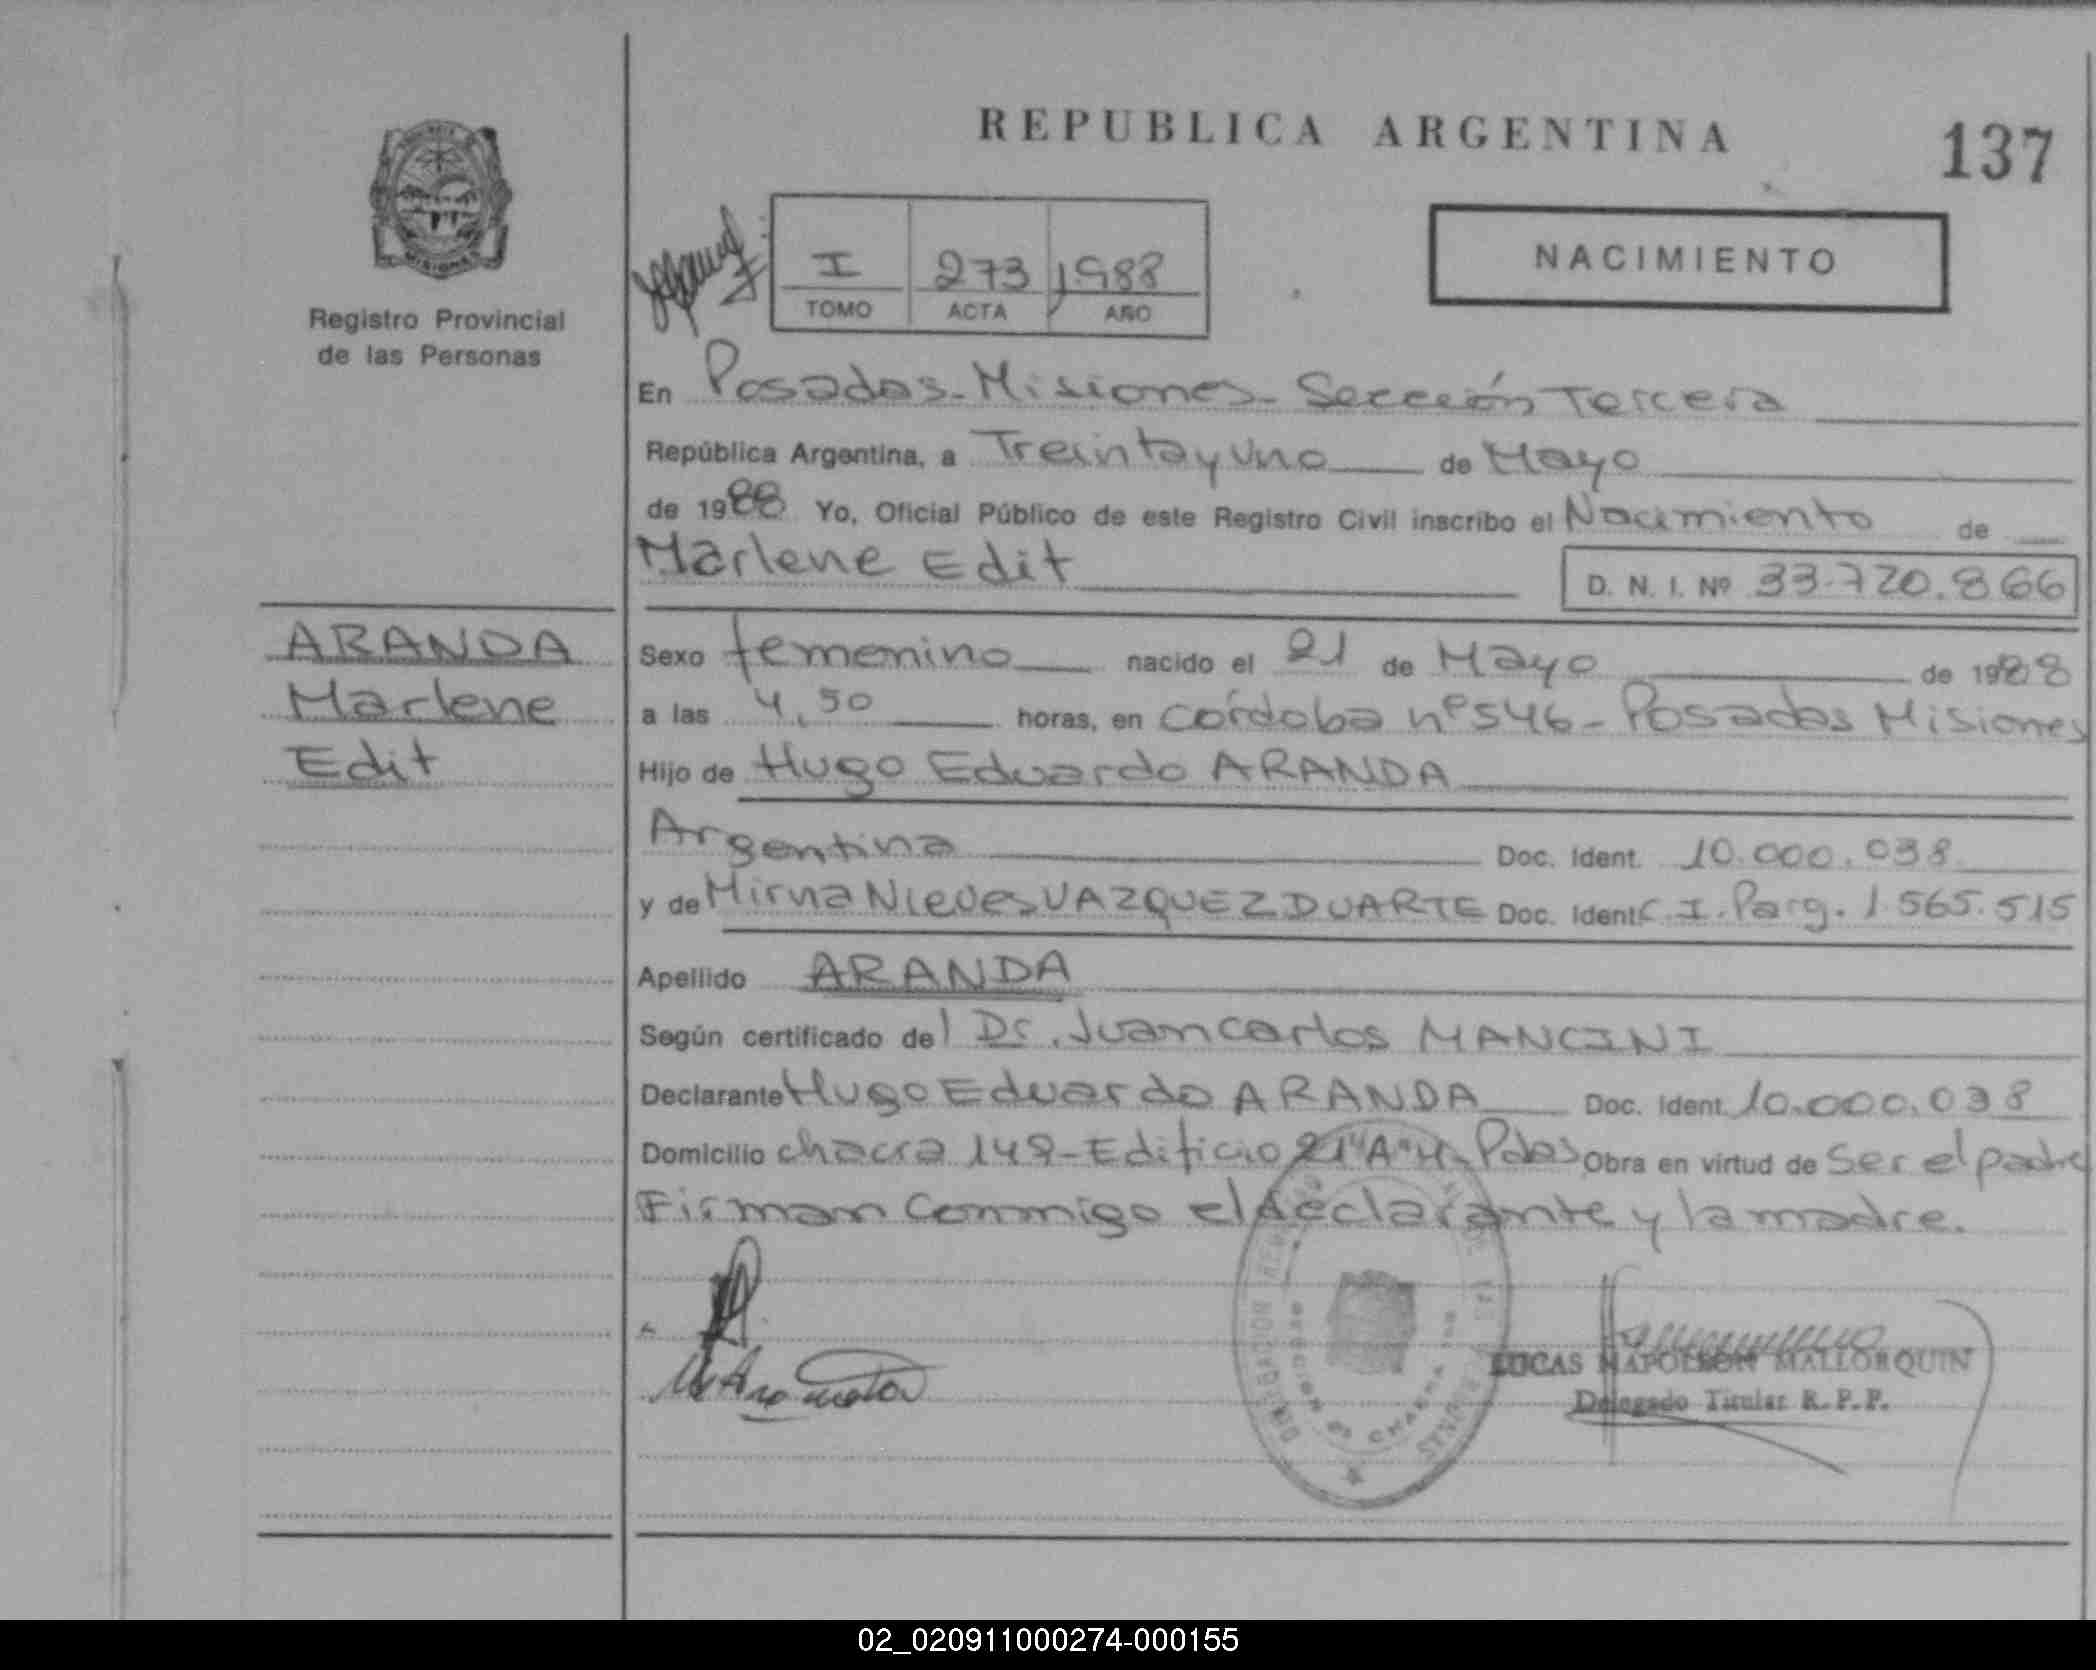 REPUBLICA ARGENTINA
137
MISIONES
Registro Provincial
de las Personas
I 273 1988
TOMO ACTA AÑO
NACIMIENTO
En Posadas-Misiones-Sección Tercera
República Argentina, a Treinta y uno de Mayo
de 1988 Yo, Oficial Público de este Registro Civil inscribo el Nacimiento de
Marlene Edit
D. N. I. Nº 33.720.866
ARANDA
Marlene
Edit
Sexo femenino nacido el 21 de Mayo de 1988
a las 4,50 horas, en Córdoba nº 546-Posadas Misiones
Hijo de Hugo Eduardo ARANDA
Argentina Doc. Ident. 10.000.038
y de Mirna Nieves VAZQUEZ DUARTE Doc. Ident C.I. Parg. 1.565.515
Apellido ARANDA
Según certificado del Dr. Juan Carlos MANCINI
Declarante Hugo Eduardo ARANDA Doc. Ident. 10.000.038
Domicilio chacra 149-Edificio 21 "A" 4-Pdas Obra en virtud de Ser el padre
Firman Conmigo el declarante y la madre.
LUCAS NAPOLEON MALLORQUIN
Delegado Titular R.P.P.
02_020911000274-000155